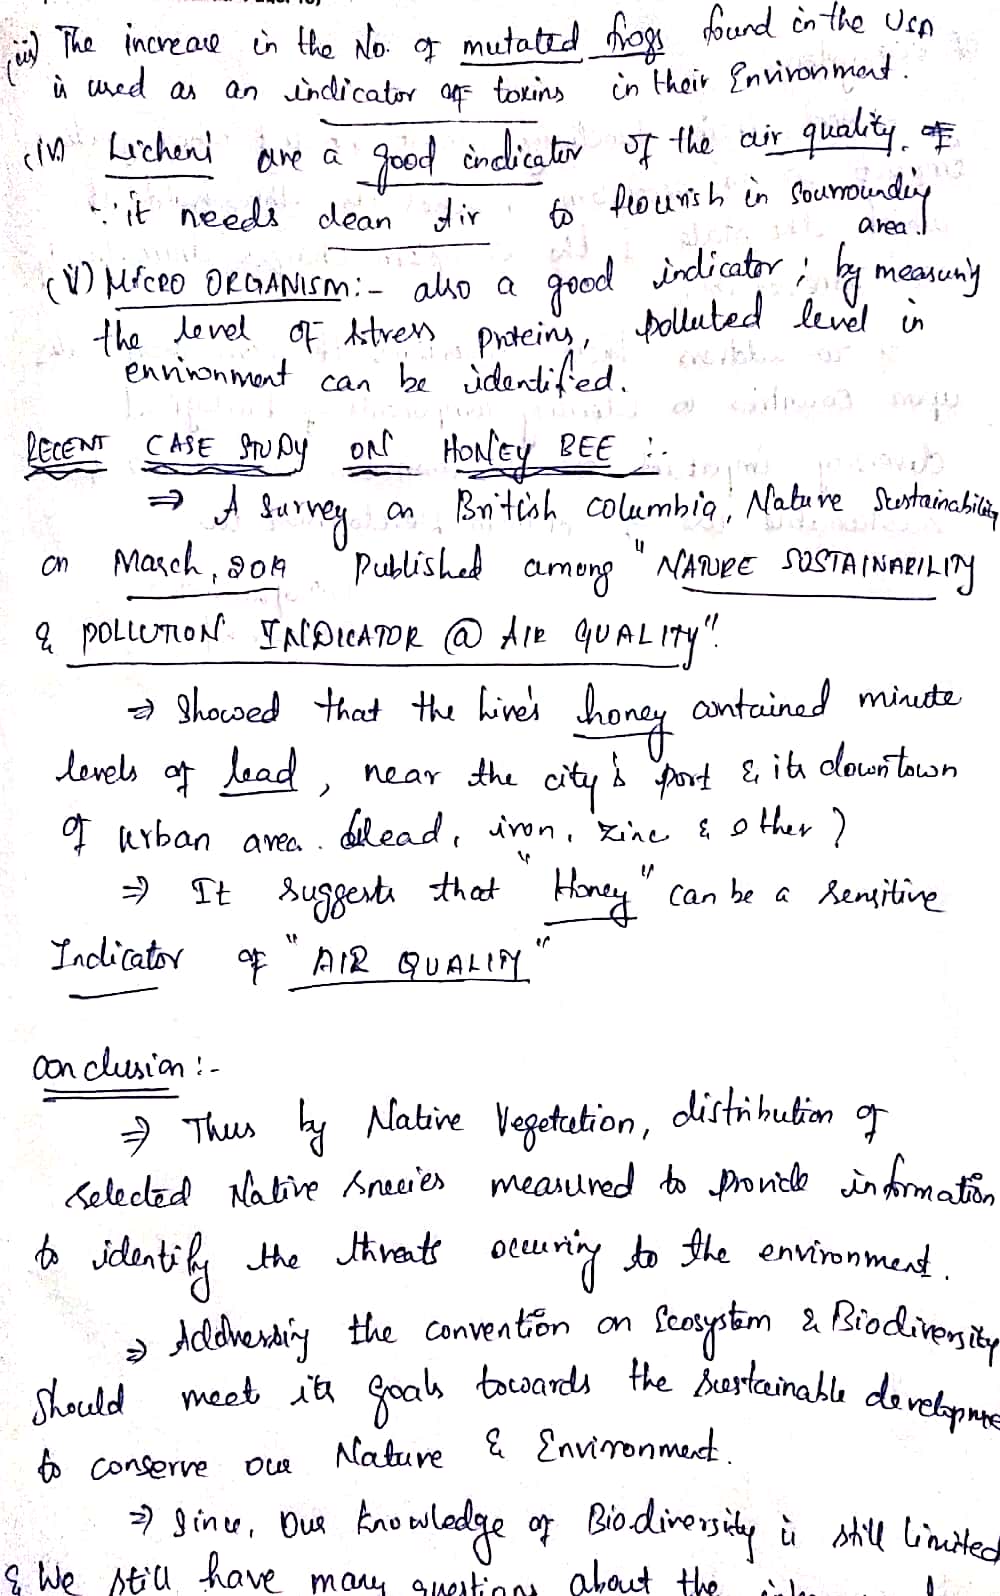 (iii) The increase in the No. of mutated frogs found in the USA
is used as an indicator of toxins in their Environment.
(iv) Licheni are a good indicator of the air quality. of
∵ it needs clean Air to flourish in Sourrounding
area.
(V) MICRO ORGANISM:- also a good indicator; by measuring
the level of stress proteins, polluted level in
environment can be identified.
RECENT CASE STUDY ON HONEY BEE :.
⇒ A Survey on British Columbia, Nature Sustainability
on March, 2019 Published among "NATURE SUSTAINABILITY
& POLLUTION INDICATOR @ AIR QUALITY".
⇒ Showed that the hive's honey contained minute
levels of lead, near the city's port & its downtown
of urban area. lead, iron, zinc & other)
⇒ It suggests that "Honey" can be a sensitive
Indicator of "AIR QUALITY"
Conclusion :-
⇒ Thus by Native Vegetation, distribution of
selected Native species measured to provide information
to identify the threats occuring to the environment.
⇒ Addressing the convention on Ecosystem & Biodiversity
should meet its goals towards the sustainable developme
to conserve our Nature & Environment.
⇒ Since, Our knowledge of Biodiversity is still limited
& We still have many questions about the